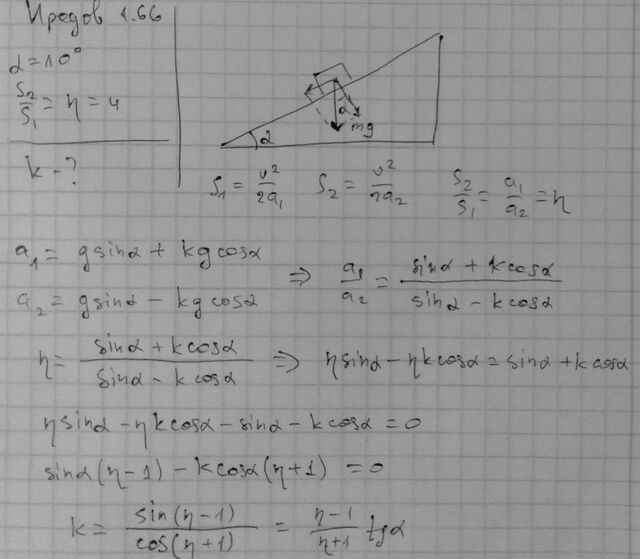 Иродов 1.66
α = 10°
S₂/S₁ = η = 4
k - ?
α
α
mg
S₁ = v²/2a₁   S₂ = v²/2a₂   S₂/S₁ = a₁/a₂ = η
a₁ = g sinα + kg cosα
a₂ = g sinα - kg cosα
⇒ a₁/a₂ = (sinα + k cosα)/(sinα - k cosα)
η = (sinα + k cosα)/(sinα - k cosα) ⇒ η sinα - η k cosα = sinα + k cosα
η sinα - η k cosα - sinα - k cosα = 0
sinα(η - 1) - k cosα(η + 1) = 0
k = sin(η - 1)/cos(η + 1) = (η - 1)/(η + 1) tgα